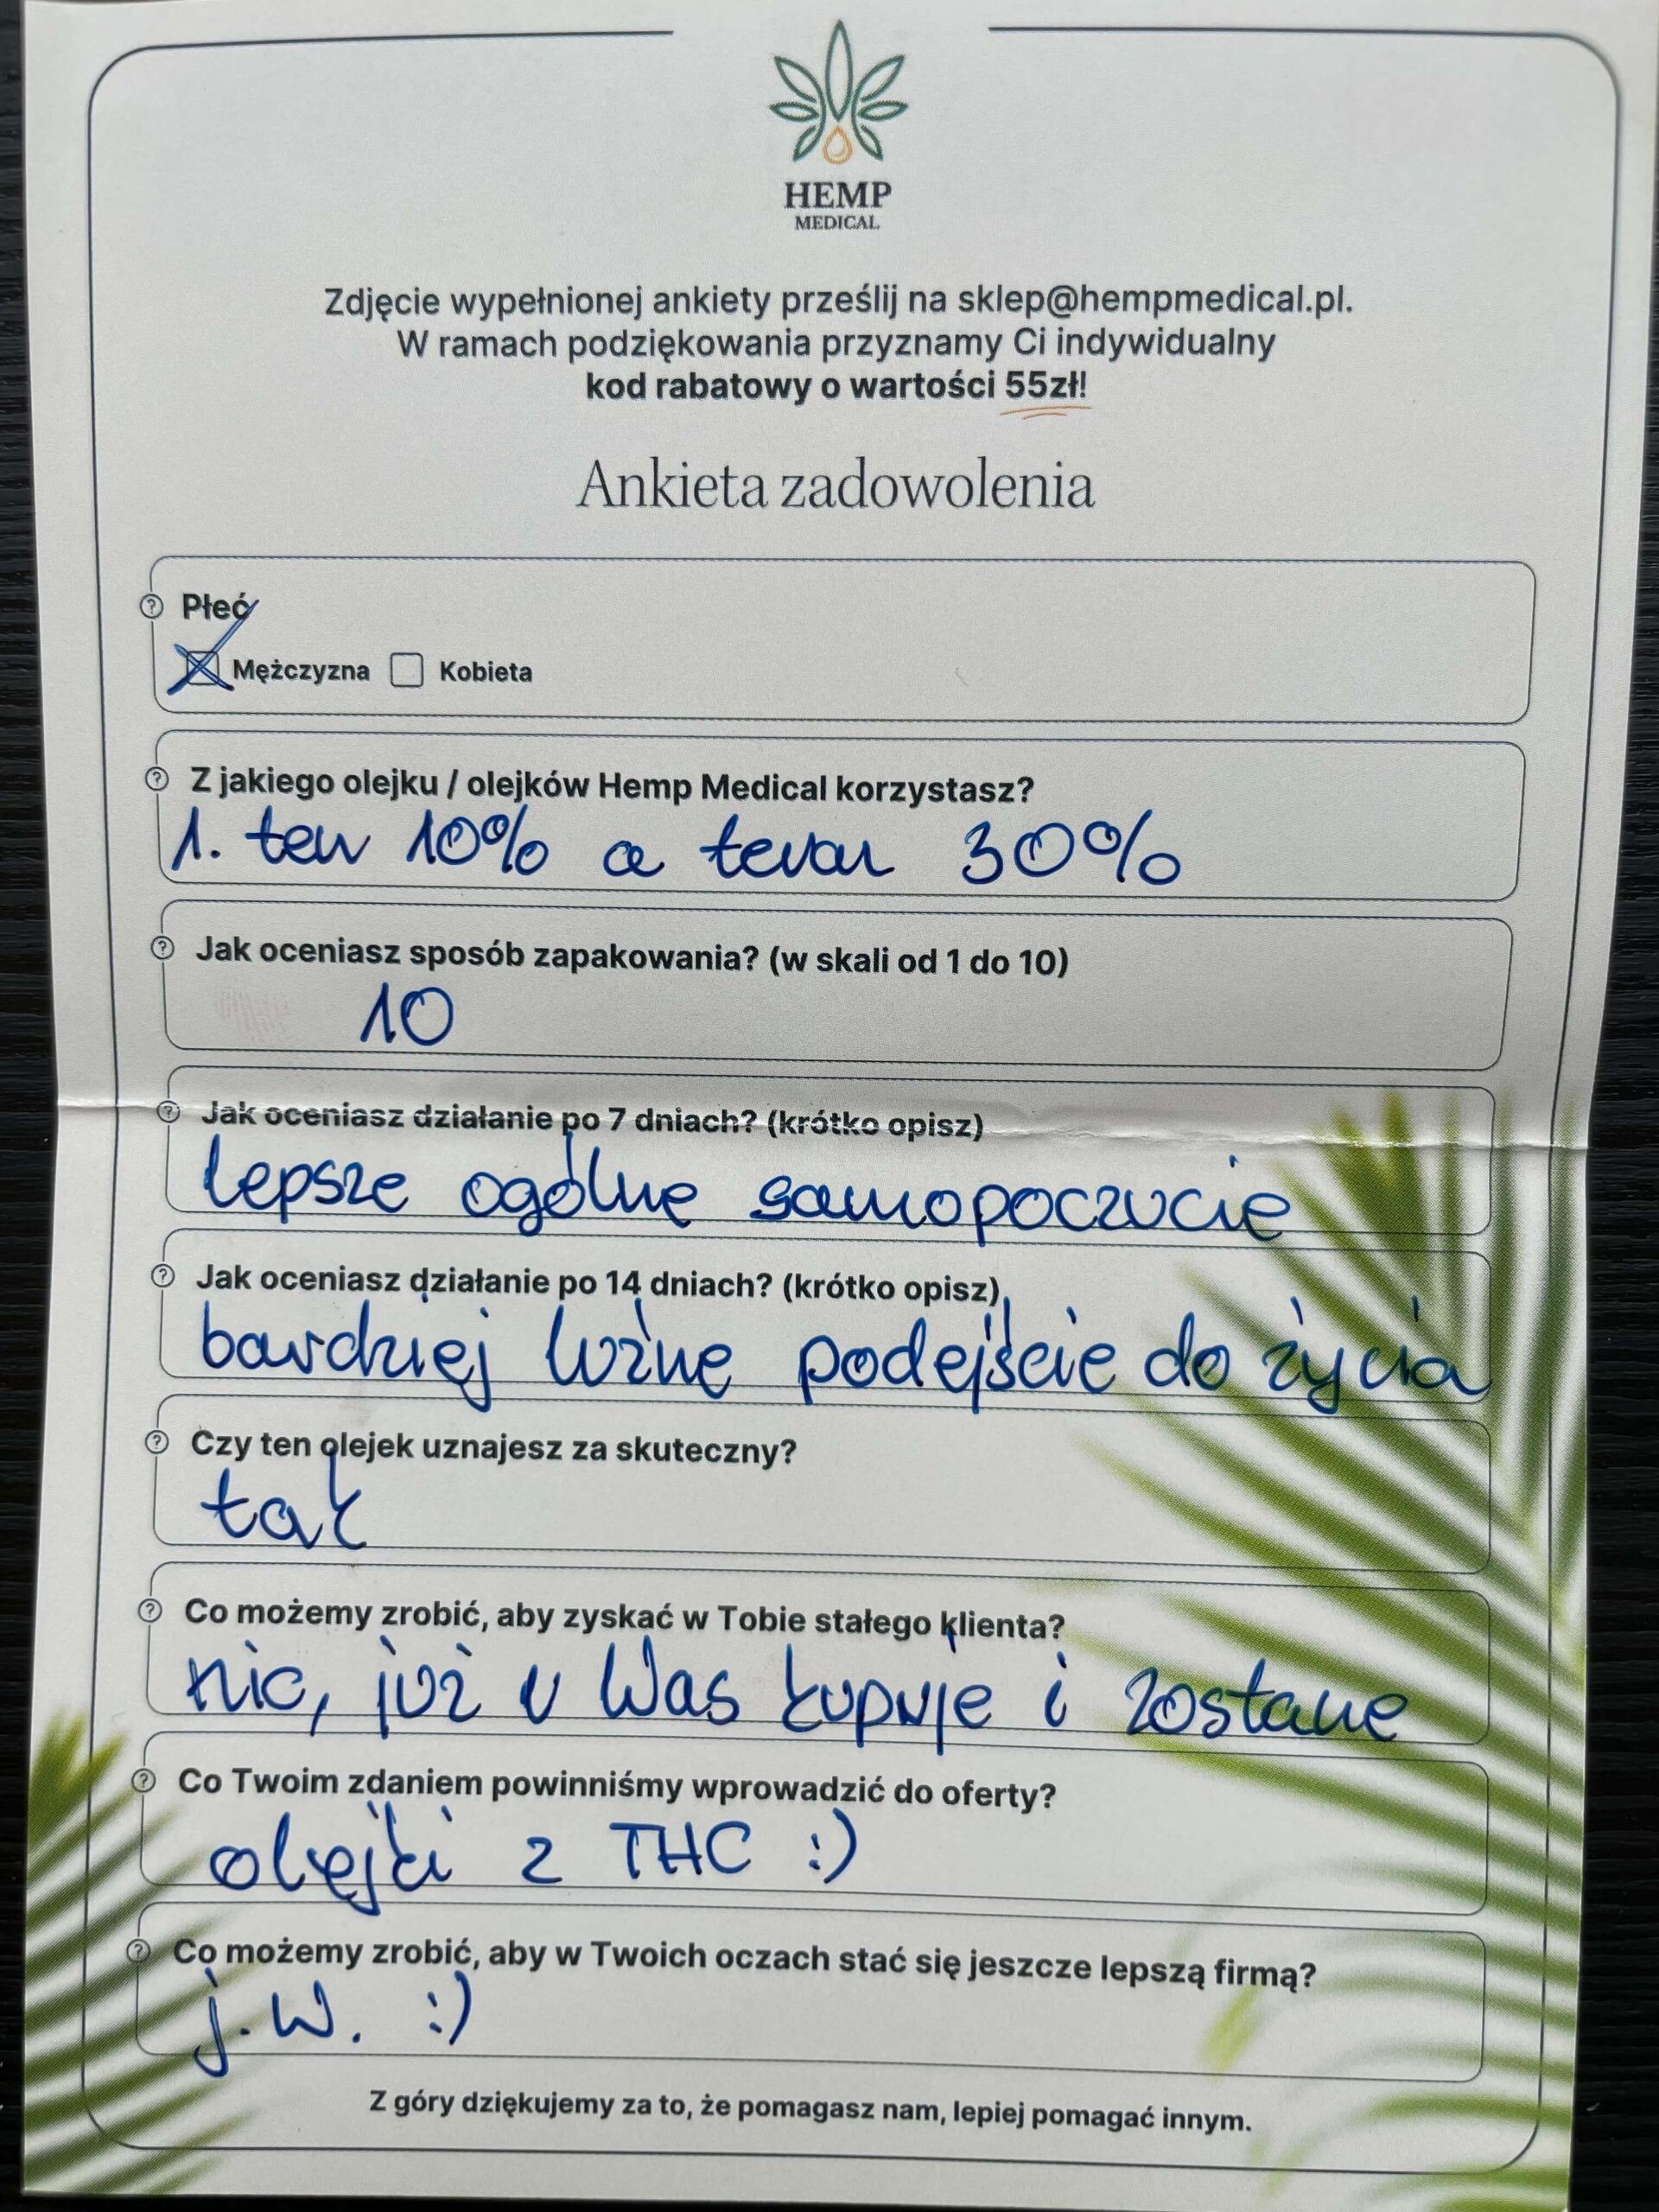 HEMP
MEDICAL
Zdjęcie wypełnionej ankiety prześlij na sklep@hempmedical.pl.
W ramach podziękowania przyznamy Ci indywidualny
kod rabatowy o wartości 55zł!
Ankieta zadowolenia
Płeć
Mężczyzna Kobieta
Z jakiego olejku / olejków Hemp Medical korzystasz?
1. ten 10% a teraz 30%
Jak oceniasz sposób zapakowania? (w skali od 1 do 10)
10
Jak oceniasz działanie po 7 dniach? (krótko opisz)
lepsze ogólne samopoczucie
Jak oceniasz działanie po 14 dniach? (krótko opisz)
bardziej luźne podejście do życia
Czy ten olejek uznajesz za skuteczny?
tak
Co możemy zrobić, aby zyskać w Tobie stałego klienta?
nic, już u Was kupuje i zostane
Co Twoim zdaniem powinniśmy wprowadzić do oferty?
olejki z THC :)
Co możemy zrobić, aby w Twoich oczach stać się jeszcze lepszą firmą?
j.w. :)
Z góry dziękujemy za to, że pomagasz nam, lepiej pomagać innym.